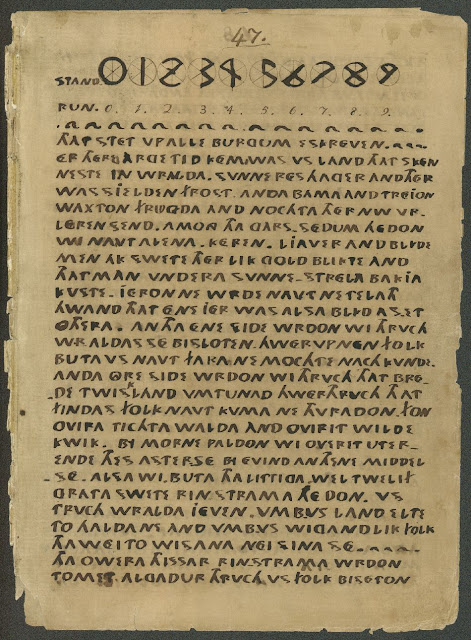 47.
STAND. 0 1 2 3 4 5 6 7 8 9
RUN. 0. 1. 2. 3. 4. 5. 6. 7. 8. 9.
THAT STET VPALLE BURGUM ESKREVEN.
ER THERE ARGE TID KEM, WAS VS LAND THAT SKEN
NESTE IN WRALDA. SUNNE RES HAGER AND THER
WAS SIELDEN FROST. ANDA BAMA AND TREION
WAXTON FRUGDA AND NOCHTA THER NW VR-
LEREN SEND. AMONG THA GARS-SEDUM HEDON
WI NAVT ALENA. KEREN. LIAVER AND BLIDE
MEN AK SWETE THER LIK GOLD BLIKTE AND
THATMAN VNDERA SUNNE-STRELA BAKIA
KUSTE. IERON NE WRDE NAVT NE TELATH
HWAND THAT ENE IER WAS ALSA BLID AS ET
OTHERA. AN THA ENE SIDE WRDON WI THRUCH
WRALDAS SE BISLOTEN. HWERVP NEN FOLK
BUTA VS NAVT FARA NE MOCHTE NACH KUNDE.
ANDA ORE SIDE WRDON WI THRUCH THAT BRE-
DE TWISKLAND VMTUNAD HWERTHRUCH THAT
FINDAS FOLK NAVT KUMA NE THURADON. FON
OVIRA TICHTA WALDA AND OVIR IT WILDE
KWIK. BY MORNE PALDON WI OVER IT UTER-
ENDE THES ASTERSE. BI EVIND AN THENE MIDDEL
SE. ALSA WI. BUTA THA LITTIGA. WEL TWELIF
GRATA SWETE RINSTRAMA HEDON. VS
TRUCH WRALDA IEVEN. VMB VS LAND ELTE
TO HALDANE AND VMB VS WIGANDLIK FOLK
THA WEI TO WISANA NEI SINA SE.
THA OWERA THISSAR RINSTRAMA WRDON
TOMET ALGADUR THRUCH VS FOLK BISETON